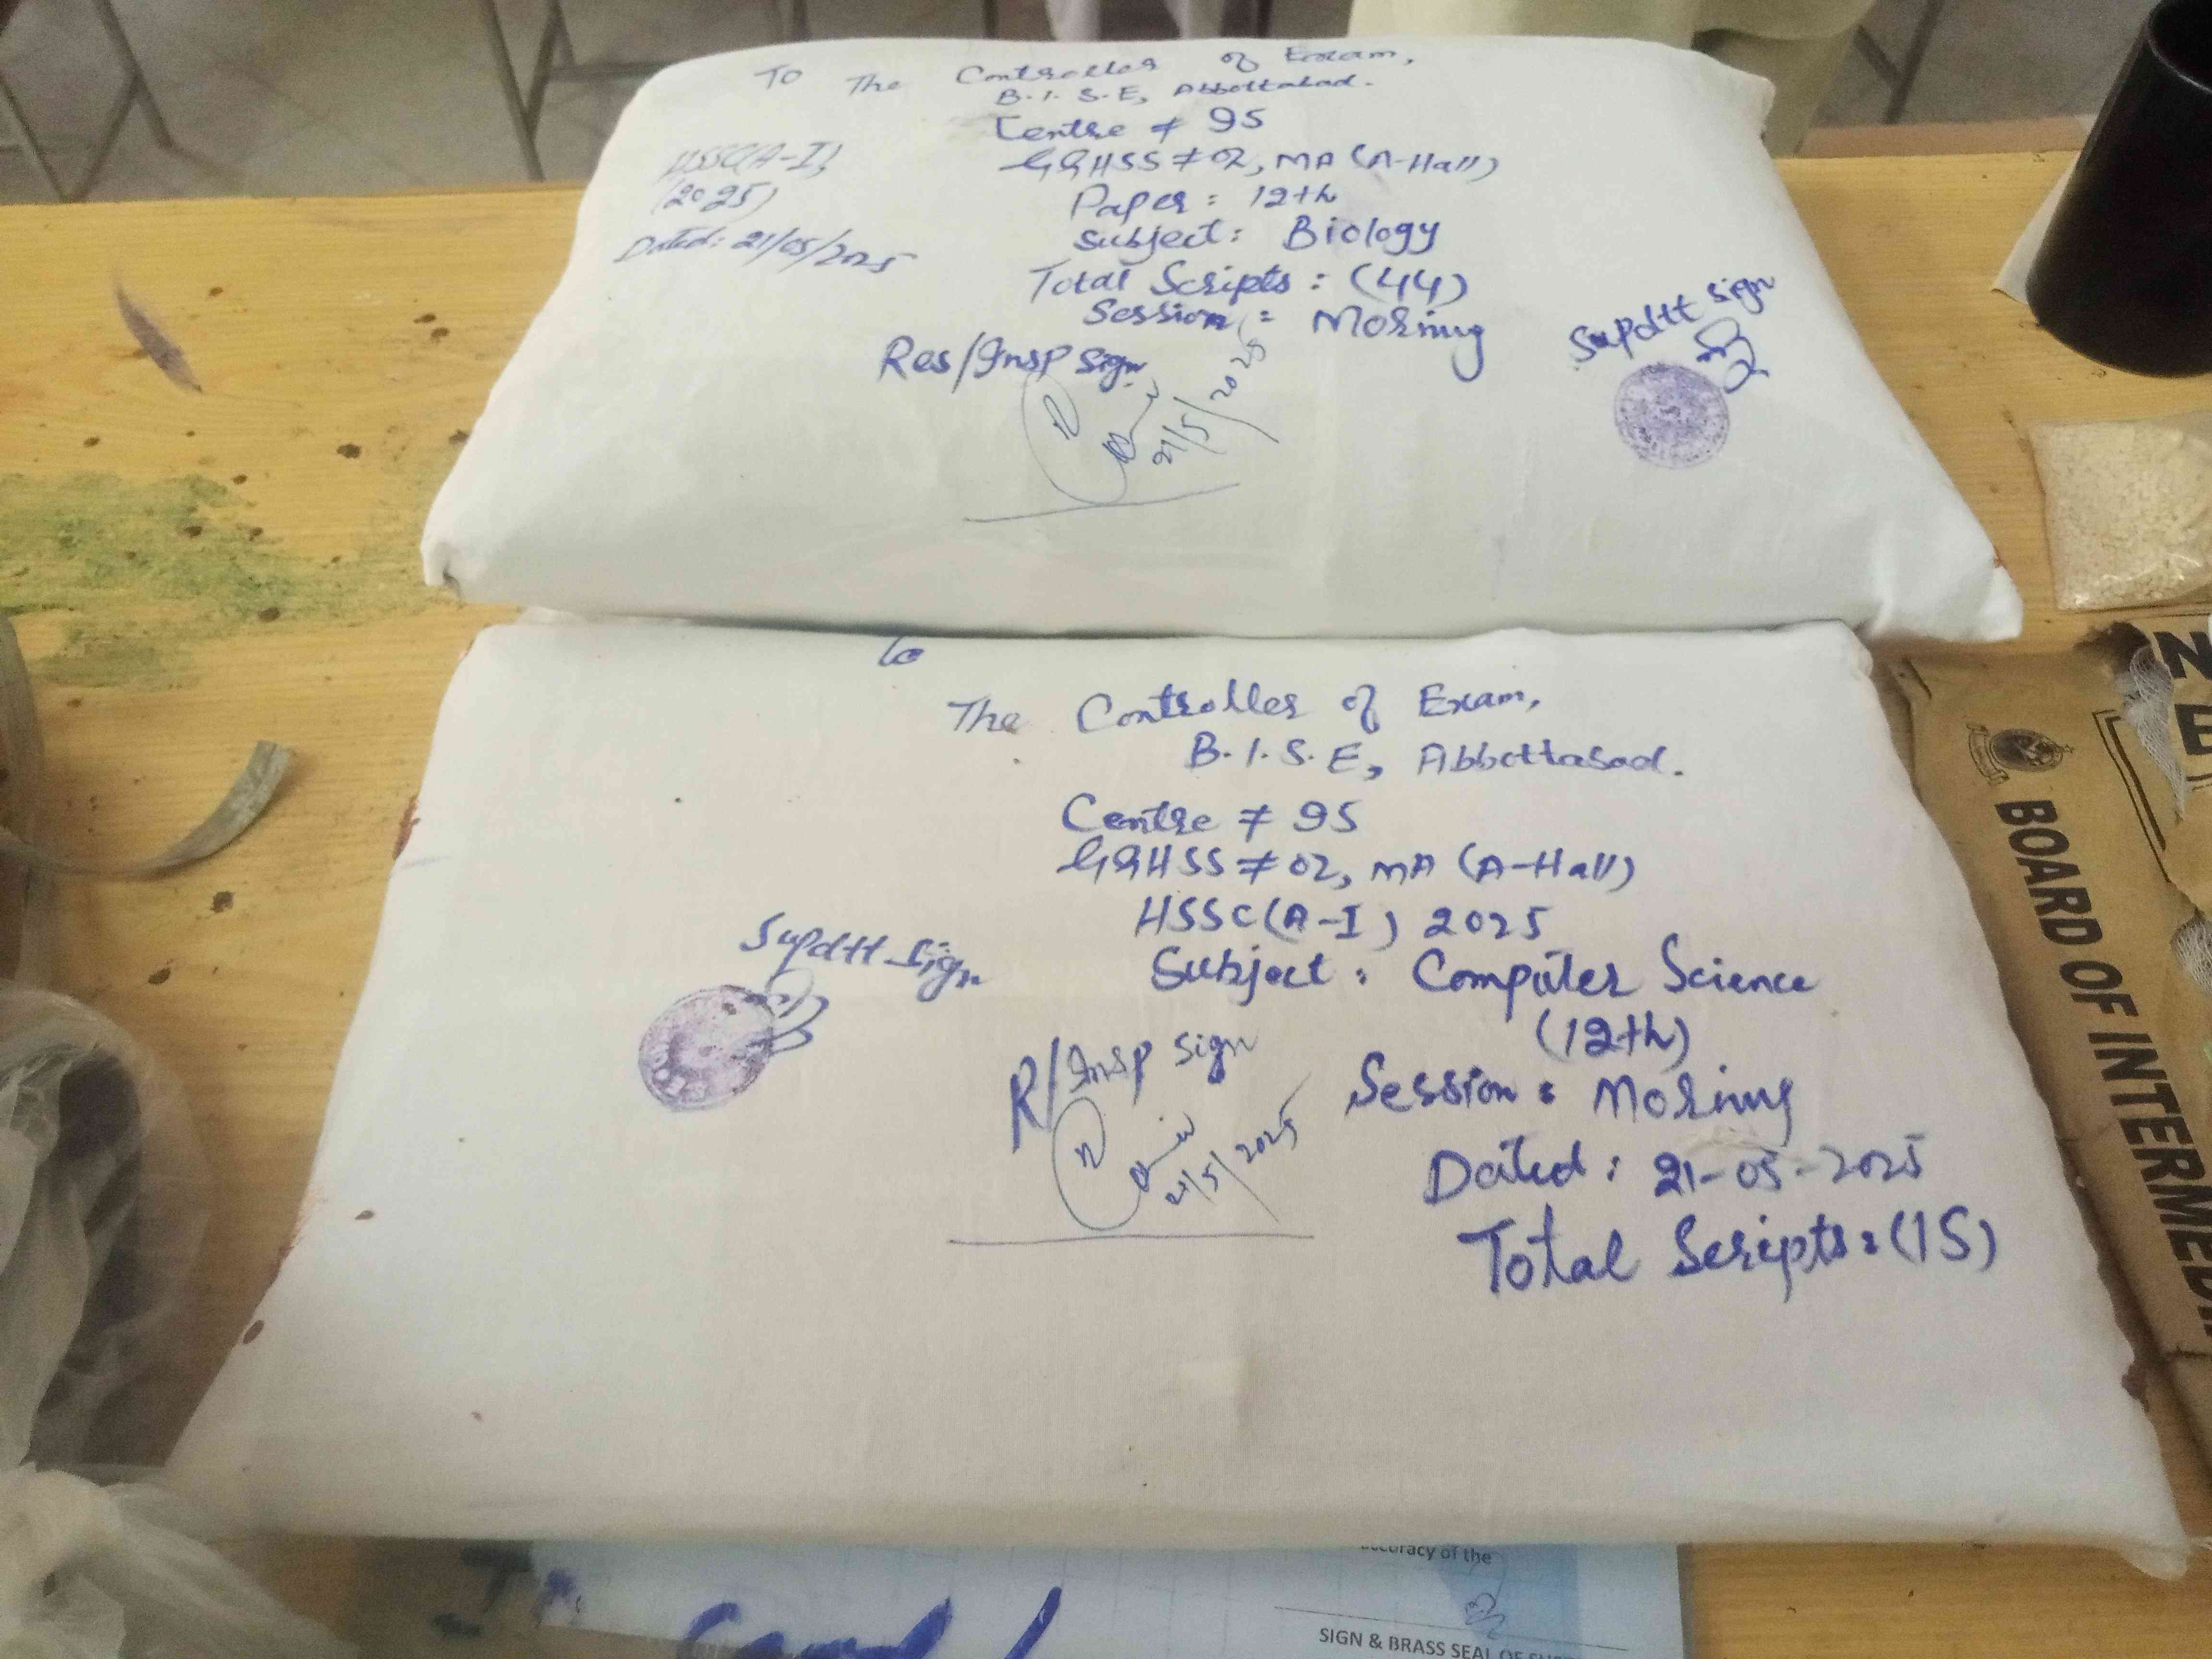 To The Controller of Exam,
B.I.S.E, Abbottabad.
Centre # 95
GGHSS # 02, MA (A-Hall)
HSSC(A-I)
(2025)
Dated: 21/05/2025
Paper: 12th
Subject: Biology
Total Scripts: (44)
Session: Morinng
Res/Insp Sign
21/5/2025
Supdtt sign
to
The Controller of Exam,
B.I.S.E, Abbottabad.
Centre # 95
GGHSS # 02, MA (A-Hall)
HSSC(A-I) 2025
Subject: Computer Science
(12th)
Supdtt Sign
R/Insp sign
21/5/2025
Session: Morinng
Dated: 21-05-2025
Total Scripts: (15)
BOARD OF INTERMED
accuracy of the
SIGN & BRASS SEAL OF